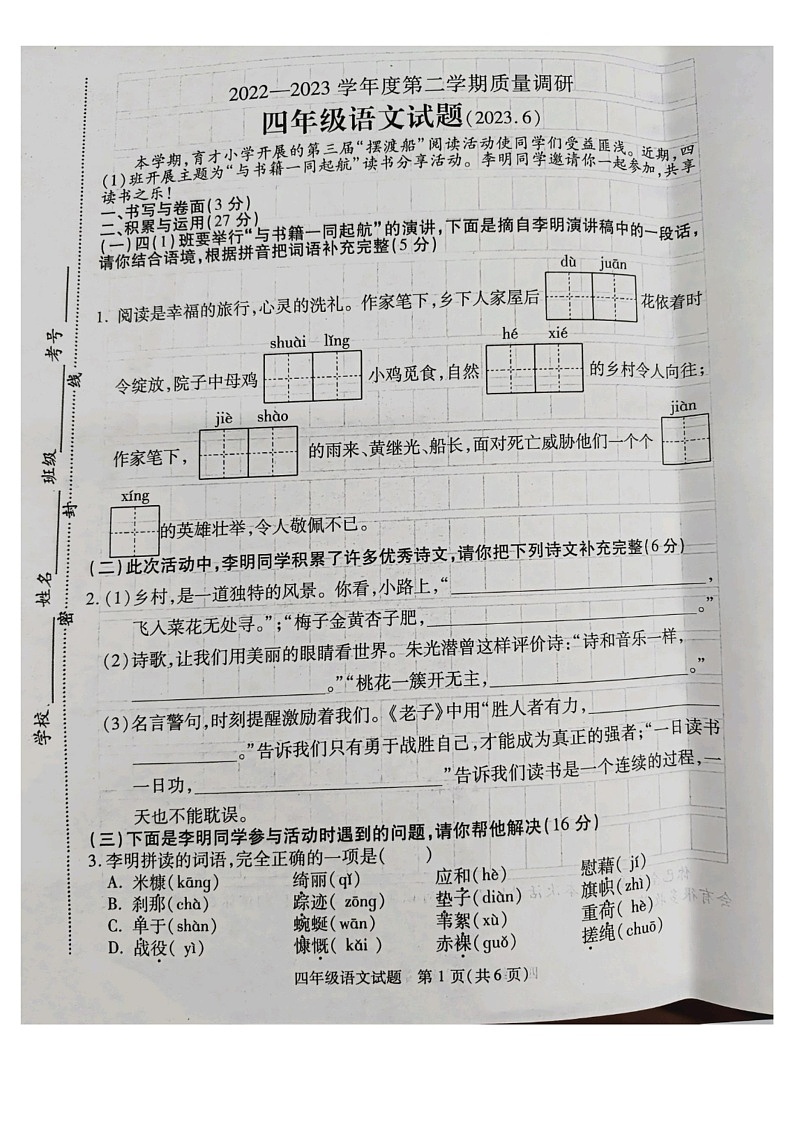 2022—2023 学年度第二学期质量调研
四年级语文试题(2023.6)
本学期,育才小学开展的第三届“摆渡船”阅读活动使同学们受益匪浅。近期,四
(1)班开展主题为“与书籍一同起航”读书分享活动。李明同学邀请你一起参加,共享
读书之乐!
一、书写与卷面(3 分)
二、积累与运用(27 分)
(一)四(1)班要举行“与书籍一同起航”的演讲,下面是摘自李明演讲稿中的一段话,
请你结合语境,根据拼音把词语补充完整(5 分)
dù juān
1. 阅读是幸福的旅行,心灵的洗礼。作家笔下,乡下人家屋后 花依着时
shuài lǐng hé xié
令绽放,院子中母鸡 小鸡觅食,自然 的乡村令人向往;
jiè shào jiàn
作家笔下, 的雨来、黄继光、船长,面对死亡威胁他们一个个
xíng
的英雄壮举,令人敬佩不已。
(二)此次活动中,李明同学积累了许多优秀诗文,请你把下列诗文补充完整(6 分)
2. (1)乡村,是一道独特的风景。你看,小路上,“________,
飞入菜花无处寻。”;“梅子金黄杏子肥,________。”
(2)诗歌,让我们用美丽的眼睛看世界。朱光潜曾这样评价诗:“诗和音乐一样,
________。”“桃花一簇开无主,________。”
(3)名言警句,时刻提醒激励着我们。《老子》中用“胜人者有力,________
________。”告诉我们只有勇于战胜自己,才能成为真正的强者;“一日读书
一日功,________”告诉我们读书是一个连续的过程,一
天也不能耽误。
(三)下面是李明同学参与活动时遇到的问题,请你帮他解决(16 分)
3. 李明拼读的词语,完全正确的一项是( )
A. 米糠(kāng) 绮丽(qǐ) 应和(hè) 慰藉( jí)
B. 刹那(chà) 踪迹( zōng) 垫子(diàn) 旗帜(zhì)
C. 单于(shàn) 蜿蜒(wān) 韦絮(xù) 重荷( hè)
D. 战役( yì) 慷慨( kǎi ) 赤裸(guǒ) 搓绳(chuō)
四年级语文试题 第 1 页(共 6 页)
学校 姓名 班级 考号
密 封 线